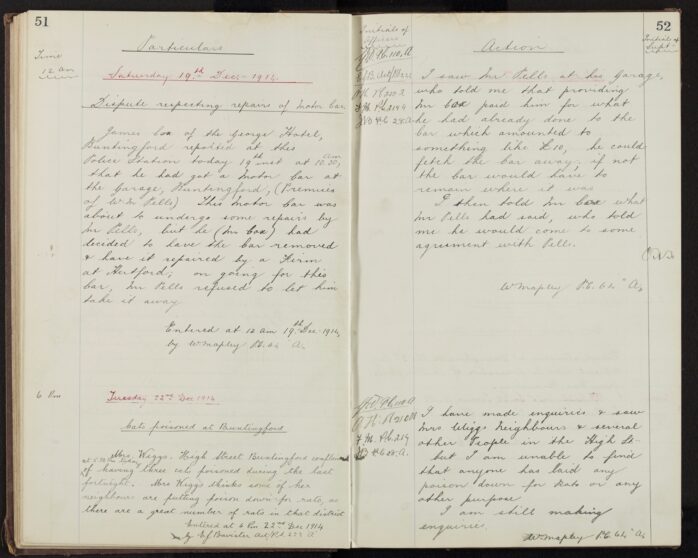 51
Particulars
Time
12 am
Saturday 19th Dec 1914.
Dispute respecting repairs of Motor Car
James Cox of the George Hotel,
Buntingford reported at this
Police Station today 19th inst at 10.30, am
that he had got a Motor Car at
the Garage, Buntingford, (Premises
of W. M. Pells) This Motor Car was
about to undergo some repairs by
Mr Pells, but he (Mr Cox) had
decided to have the car removed
& have it repaired by a Firm
at Hertford; on going for this
Car, Mr Pells refused to let him
take it away
Entered at 12 am 19th Dec 1914,
by W Mapley P.C. 64 A.
6 Pm
Tuesday 22nd Dec 1914
Cats poisoned at Buntingford
Mrs. Wiggs. High Street Buntingford complained
of having three cats poisoned during the last
fortnight. Mrs Wiggs thinks some of her
neighbours are putting poison down for rats, as
there are a great number of rats in that district
Entered at 6 Pm 22nd Dec 1914
52
Initials of
Officers
Action
Initials of
Supt
I saw Mr Pells at his Garage,
who told me that providing
Mr Cox paid him for what
he had already done to the
Car which amounted to
something like £10, he could
fetch the Car away. if not
the Car would have to
remain where it was
I then told Mr Cox what
Mr Pells had said, who told
me he would come to some
agreement with Pells.
W Mapley P.C. 64 A.
I have made enquiries & saw
Mrs Wiggs Neighbours & several
other People in the High St
but I am unable to find
that anyone has laid any
poison down for Rats or any
other purpose
I am still making
enquiries.
W Mapley P.C. 64 A.